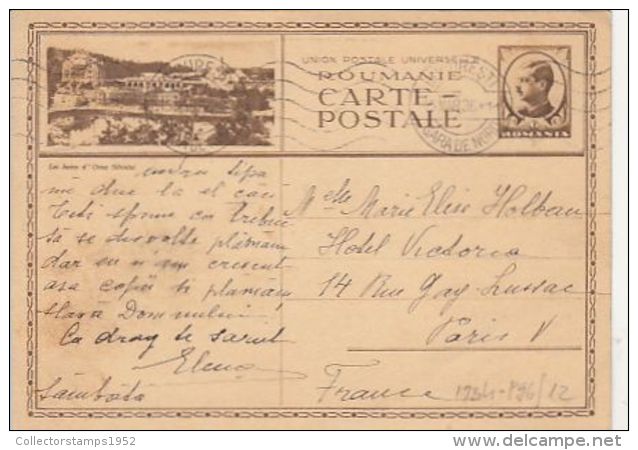 UNION POSTALE UNIVERSELLE
ROUMANIE
CARTE-
POSTALE
ROMANIA
GARA DE NORD
Les bains d'
mă duc la el căci
spune că trebue
să se desvolte plămân
dar eu n'am crescut
așa copii și plămân
slavă Domnului
Cu drag te sărut
Elena
Sâmbătă
Melle Marie Elise Holban
Hotel Victoria
14 Rue Gay Lussac
Paris V
France
1934-P96/12
Collectorstamps1952